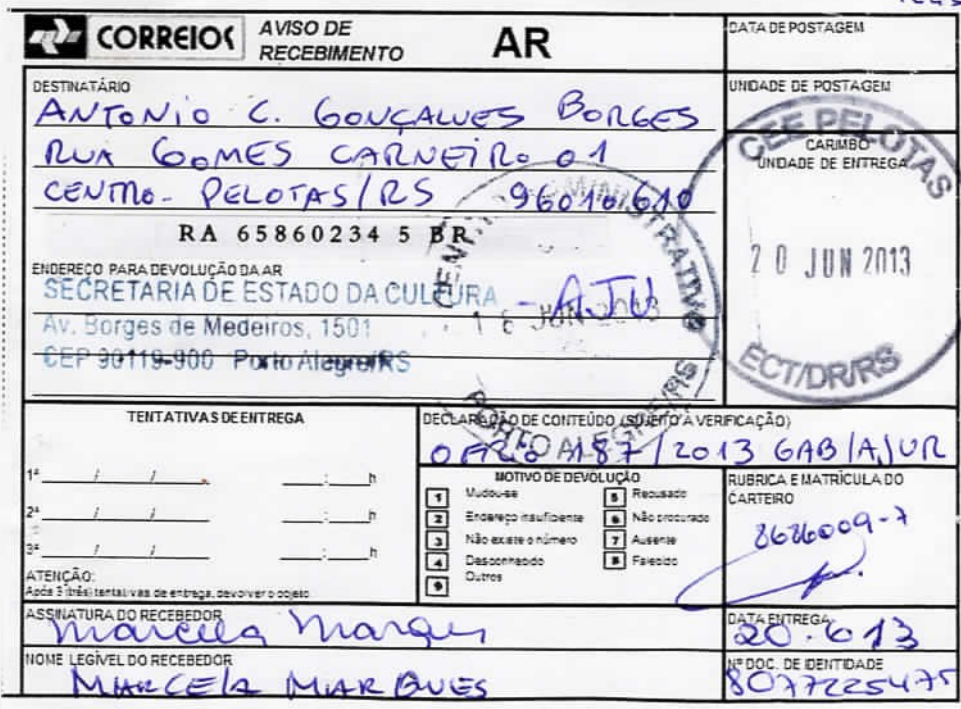 CORREIOS
AVISO DE
RECEBIMENTO
AR
DATA DE POSTAGEM
UNIDADE DE POSTAGEM
DESTINATÁRIO
ANTONIO C. GONÇALVES BORGES
RUA GOMES CARNEIRO 01
CENTRO- PELOTAS/RS 96010610
RA 65860234 5 BR
CARIMBO
UNIDADE DE ENTREGA
CEE PELOTAS
20 JUN 2013
ECT/DR/RS
ENDEREÇO PARA DEVOLUÇÃO DA AR
SECRETARIA DE ESTADO DA CULTURA - AJU
Av. Borges de Medeiros, 1501
CEP 90119-900 Porto Alegre/RS
ADMINISTRATIVO
JUN 2013
PORTO ALEGRE/RS
TENTATIVAS DE ENTREGA
1ª / / : h
2ª / / : h
3ª / / : h
ATENÇÃO:
Após 3 (três) tentativas de entrega, devolver o objeto.
DECLARAÇÃO DE CONTEÚDO (SUJEITO A VERIFICAÇÃO)
187/2013 GAB/AJUR
MOTIVO DE DEVOLUÇÃO
1 Mudou-se
2 Endereço insuficiente
3 Não existe o número
4 Desconhecido
9 Outros
5 Recusado
6 Não procurado
7 Ausente
8 Falecido
RUBRICA E MATRÍCULA DO
CARTEIRO
8686009-7
ASSINATURA DO RECEBEDOR
Marcela Marques
DATA ENTREGA
20.6 13
NOME LEGÍVEL DO RECEBEDOR
MARCELA MARQUES
Nº DOC. DE IDENTIDADE
8077225475